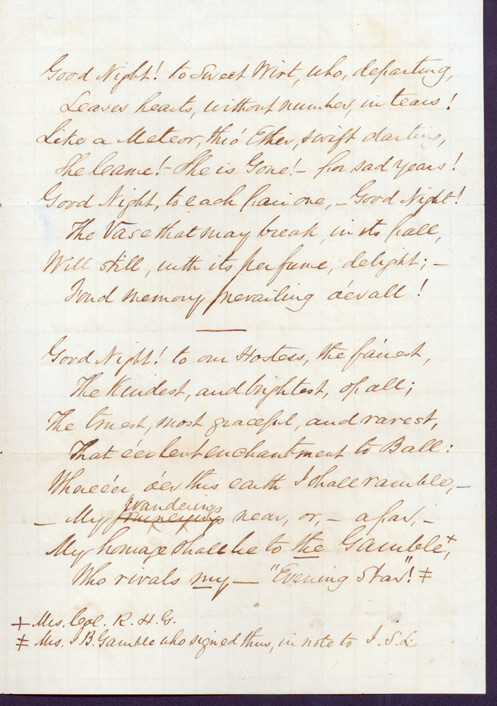 Good Night! to Sweet Wirt, who, departing,
Leaves hearts, without number, in tears!
Like a Meteor, thro' Ether, swift darting,
She came! – She is Gone! – for sad years!
Good Night, to each fair one, – Good Night!
The Vase that may break, in its fall,
Will still, with its perfume, delight; –
Fond memory prevailing o'er all!
Good Night! to our Hostess, the fairest,
The Kindest, and brightest, of all;
The truest, most graceful, and rarest,
That e'er lent enchantment to Ball:
Where'er o'er this earth I shall ramble, –
– My Wanderings near, or, – afar, –
My homage shall be to the Gamble+,
Who rivals my – "Evening Star"! ‡
+ Mrs. Col. R. H. G.
‡ Mrs. J B. Gamble who signed thus, in note to J. S. L